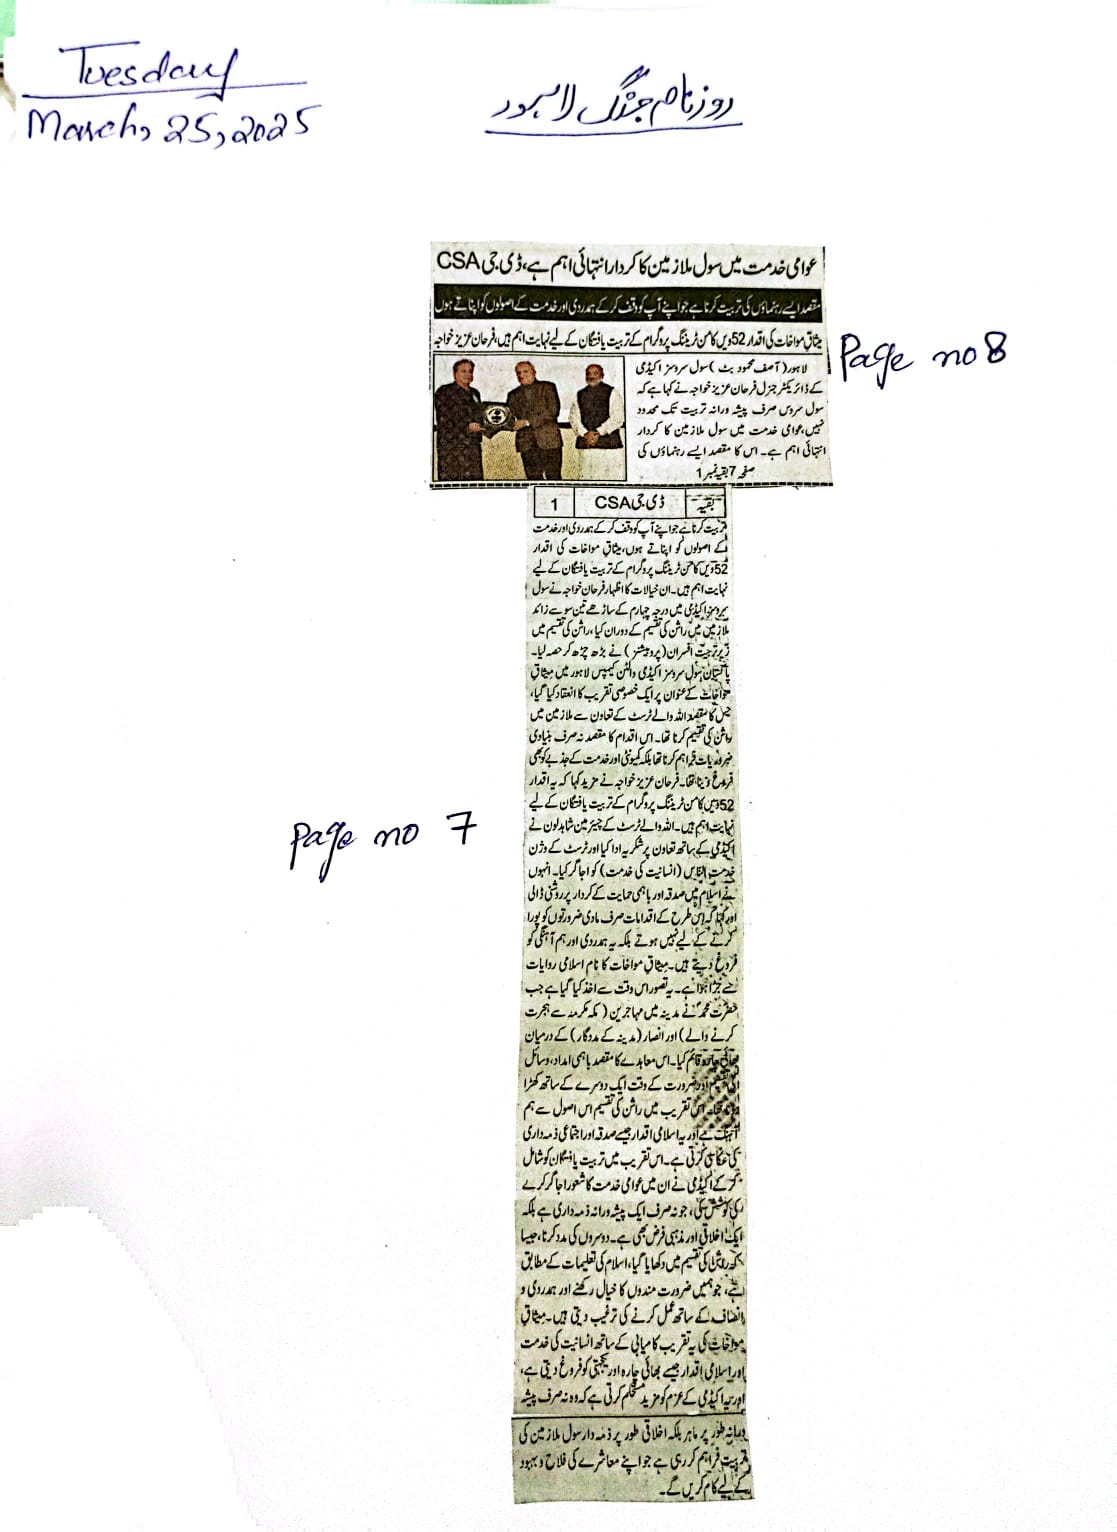 Tuesday
March, 25, 2025
روزنامہ جنگ لاہور
عوامی خدمت میں سول ملازمین کا کردار انتہائی اہم ہے، ڈی جی CSA
مقصد ایسے رہنماؤں کی تربیت کرنا ہے جو اپنے آپ کو وقف کر کے ہمدردی اور خدمت کے اصولوں کو اپناتے ہوں
میثاق مواخات کی اقدار 52ویں کامن ٹریننگ پروگرام کے تربیت یافتگان کے لیے نہایت اہم ہیں، فرحان عزیز خواجہ
Page no 8
لاہور (آصف محمود بٹ) سول سروسز اکیڈمی
کے ڈائریکٹر جنرل فرحان عزیز خواجہ نے کہا ہے کہ
سول سروس صرف پیشہ ورانہ تربیت تک محدود
نہیں، عوامی خدمت میں سول ملازمین کا کردار
انتہائی اہم ہے۔ اس کا مقصد ایسے رہنماؤں کی
صفحہ 7 بقیہ نمبر 1
بقیہ ڈی جی CSA 1
تربیت کرنا ہے جو اپنے آپ کو وقف کر کے ہمدردی اور خدمت
کے اصولوں کو اپناتے ہوں، میثاق مواخات کی اقدار
52ویں کامن ٹریننگ پروگرام کے تربیت یافتگان کے لیے
نہایت اہم ہیں۔ ان خیالات کا اظہار فرحان خواجہ نے سول
سروسز اکیڈمی میں درجہ چہارم کے ساڑھے تین سو سے زائد
ملازمین میں راشن کی تقسیم کے دوران کیا، راشن کی تقسیم میں
زیر تربیت افسران (پروبیشنرز) نے بڑھ چڑھ کر حصہ لیا۔
پاکستان سول سروسز اکیڈمی والٹن کیمپس لاہور میں میثاق
مواخات کے عنوان پر ایک خصوصی تقریب کا انعقاد کیا گیا،
جس کا مقصد اللہ والے ٹرسٹ کے تعاون سے ملازمین میں
راشن کی تقسیم کرنا تھا۔ اس اقدام کا مقصد نہ صرف بنیادی
ضروریات فراہم کرنا تھا بلکہ کمیونٹی اور خدمت کے جذبے کو بھی
فروغ دینا تھا۔ فرحان عزیز خواجہ نے مزید کہا کہ یہ اقدار
52ویں کامن ٹریننگ پروگرام کے تربیت یافتگان کے لیے
نہایت اہم ہیں۔ اللہ والے ٹرسٹ کے چیئرمین شاہد لون نے
اکیڈمی کے ساتھ تعاون پر شکریہ ادا کیا اور ٹرسٹ کے وژن
خدمت الناس (انسانیت کی خدمت) کو اجاگر کیا۔ انہوں
نے اسلام میں صدقہ اور باہمی حمایت کے کردار پر روشنی ڈالی
اور کہا کہ اس طرح کے اقدامات صرف مادی ضرورتوں کو پورا
کرنے کے لیے نہیں ہوتے بلکہ یہ ہمدردی اور ہم آہنگی کو
فروغ دیتے ہیں۔ میثاق مواخات کا نام اسلامی روایات
سے جڑا ہوا ہے۔ یہ تصور اس وقت سے اخذ کیا گیا ہے جب
حضرت محمدؐ نے مدینہ میں مہاجرین (مکہ مکرمہ سے ہجرت
کرنے والے) اور انصار (مدینہ کے مددگار) کے درمیان
بھائی چارہ قائم کیا۔ اس معاہدے کا مقصد باہمی امداد، وسائل
کی تقسیم اور ضرورت کے وقت ایک دوسرے کے ساتھ کھڑا
ہونا تھا۔ اس تقریب میں راشن کی تقسیم اس اصول سے ہم
آہنگ ہے اور یہ اسلامی اقدار جیسے صدقہ اور اجتماعی ذمہ داری
کی عکاسی کرتی ہے۔ اس تقریب میں تربیت یافتگان کو شامل
کر کے اکیڈمی نے ان میں عوامی خدمت کا شعور اجاگر کرنے
کی کوشش کی، جو نہ صرف ایک پیشہ ورانہ ذمہ داری ہے بلکہ
ایک اخلاقی اور مذہبی فرض بھی ہے۔ دوسروں کی مدد کرنا، جیسا
کہ راشن کی تقسیم میں دکھایا گیا، اسلام کی تعلیمات کے مطابق
ہے، جو ہمیں ضرورت مندوں کا خیال رکھنے اور ہمدردی و
انصاف کے ساتھ عمل کرنے کی ترغیب دیتی ہیں۔ میثاق
مواخات کی یہ تقریب کامیابی کے ساتھ انسانیت کی خدمت
اور اسلامی اقدار جیسے بھائی چارہ اور یکجہتی کو فروغ دیتی ہے،
اور یہ اکیڈمی کے عزم کو مزید مستحکم کرتی ہے کہ وہ نہ صرف پیشہ
ورانہ طور پر ماہر بلکہ اخلاقی طور پر ذمہ دار سول ملازمین کی
تربیت فراہم کر رہی ہے جو اپنے معاشرے کی فلاح و بہبود
کے لیے کام کریں گے۔
Page no 7